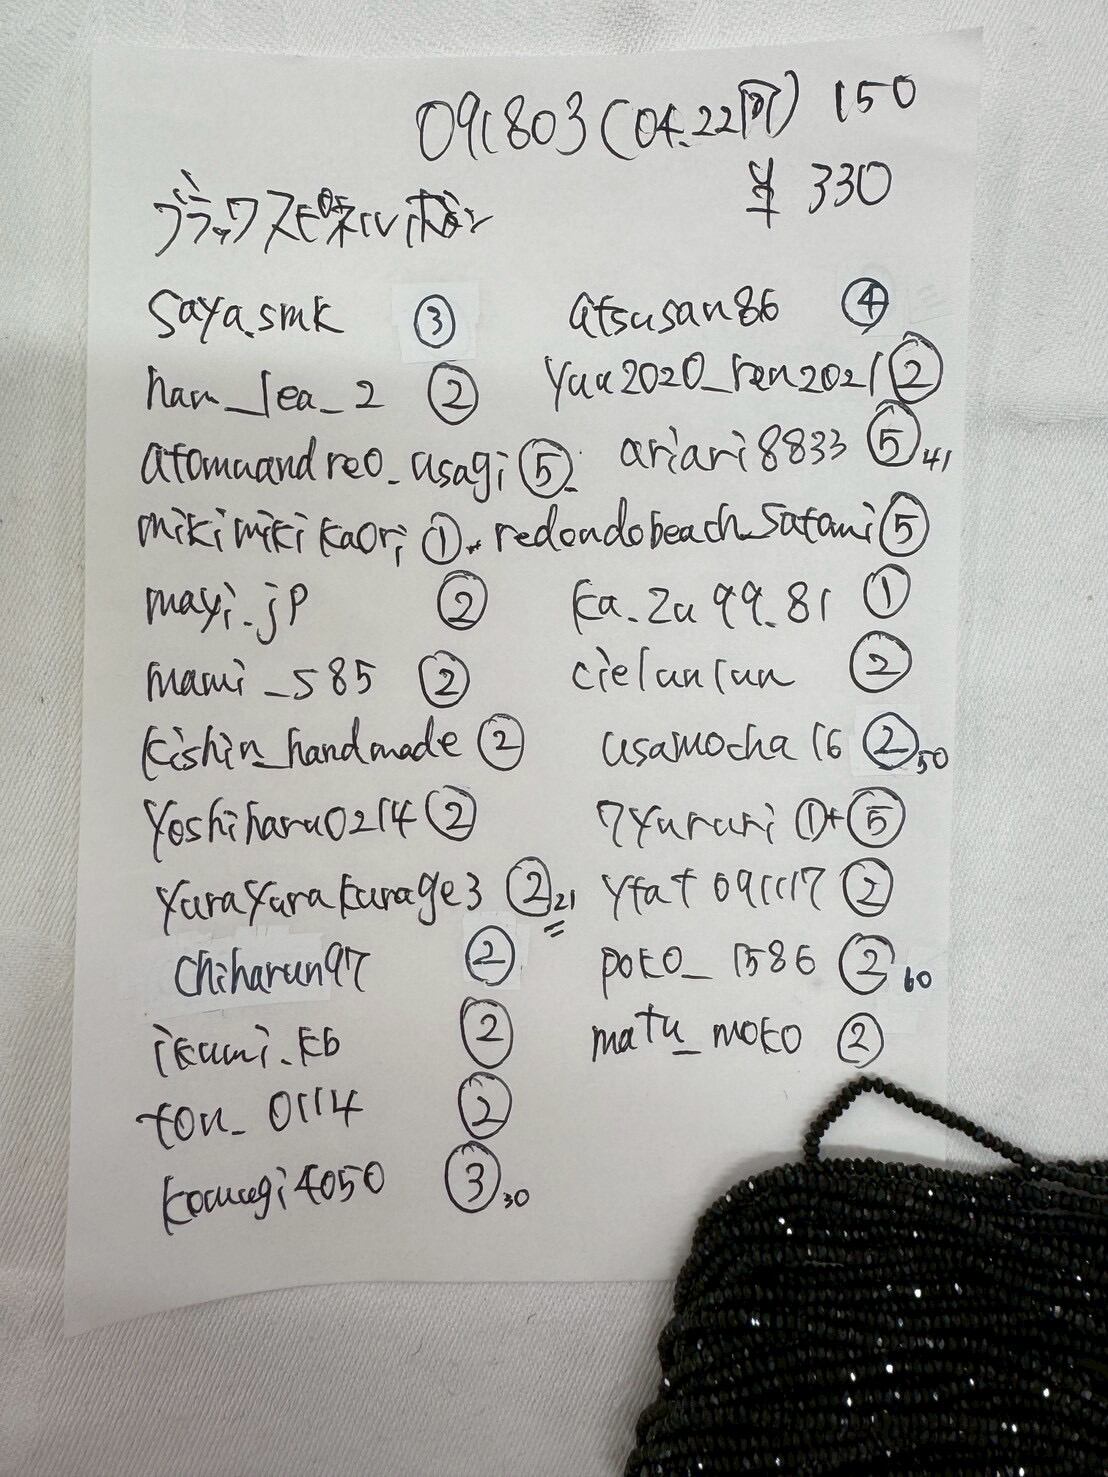 091803(04.22同) 150
¥ 330
ブラックスピネルボタン
saya.smk ③
ham_lea_2 ②
atomuandreo_usagi ⑤
mikimikikaori ①
mayi.jp ②
mami_585 ②
kishin_handmade ②
yoshiharu0214 ②
yurayurakurage3 ② 21
chiharun97 ②
ikumi.kb ②
ton_0114 ②
komugi4050 ③ 30
atsusan86 ④
yuu2020_ren2021 ②
ariari8833 ⑤ 41
redondobeach_satomi ⑤
ka_zu99_81 ①
cielunlun ②
usamocha16 ② 50
7yururi ①+⑤
ytat091117 ②
poko_1586 ② 60
matu_moko ②